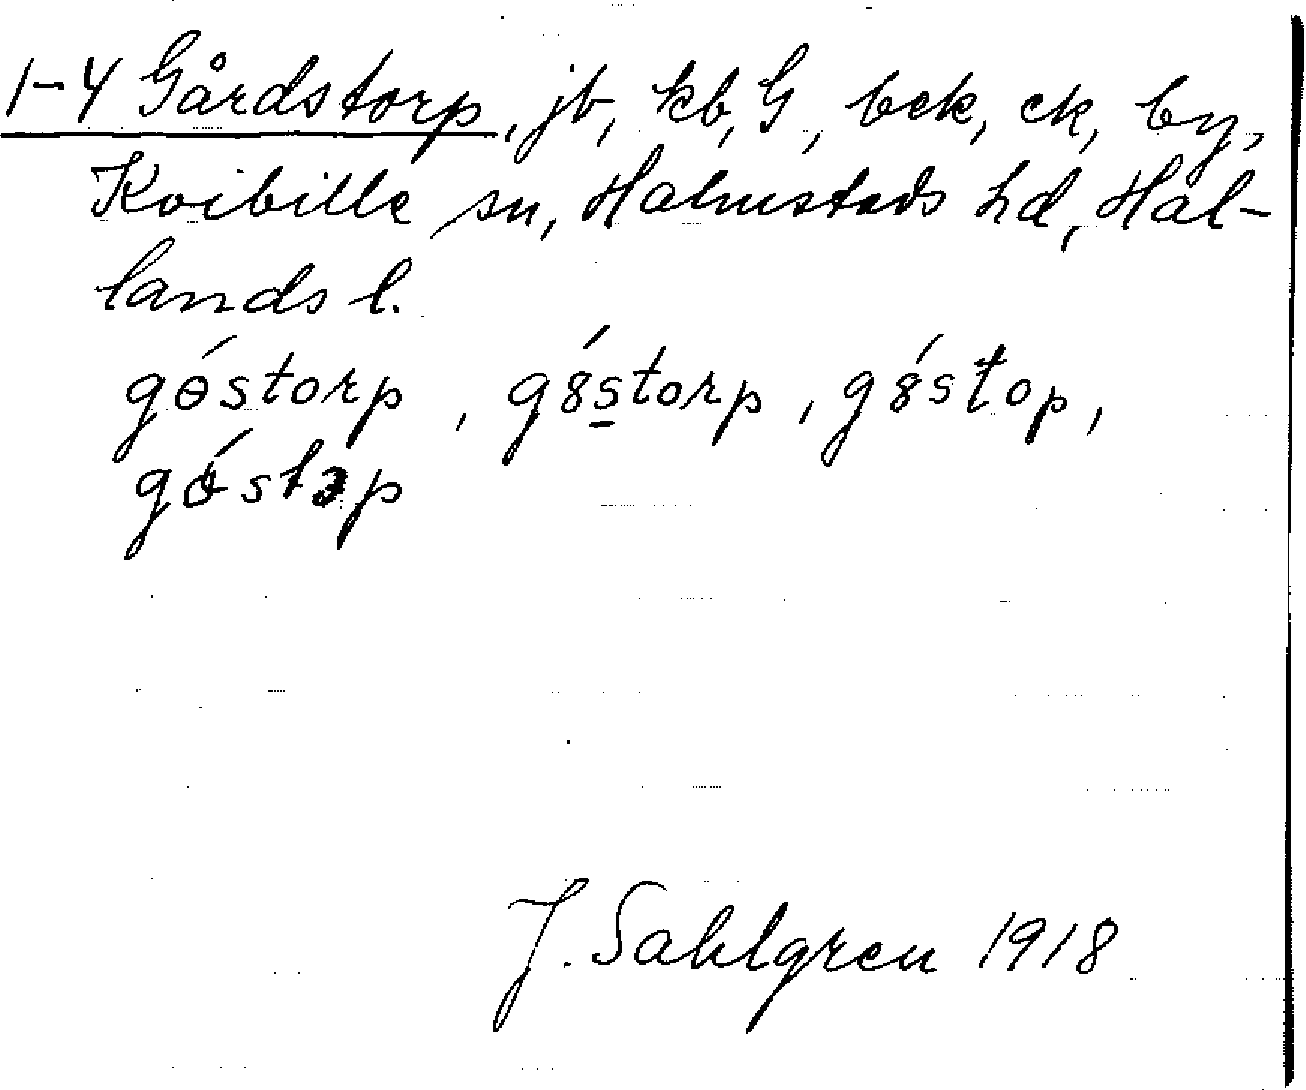 1-4 Gårdstorp, jb, kb, G, bek, ek, by,
Kvibille sn, Halmstads hd, Hal-
lands l.
gɵ́storp, gȣ́storp, gȣ́stop,
gɵ́stəp
J. Sahlgren 1918